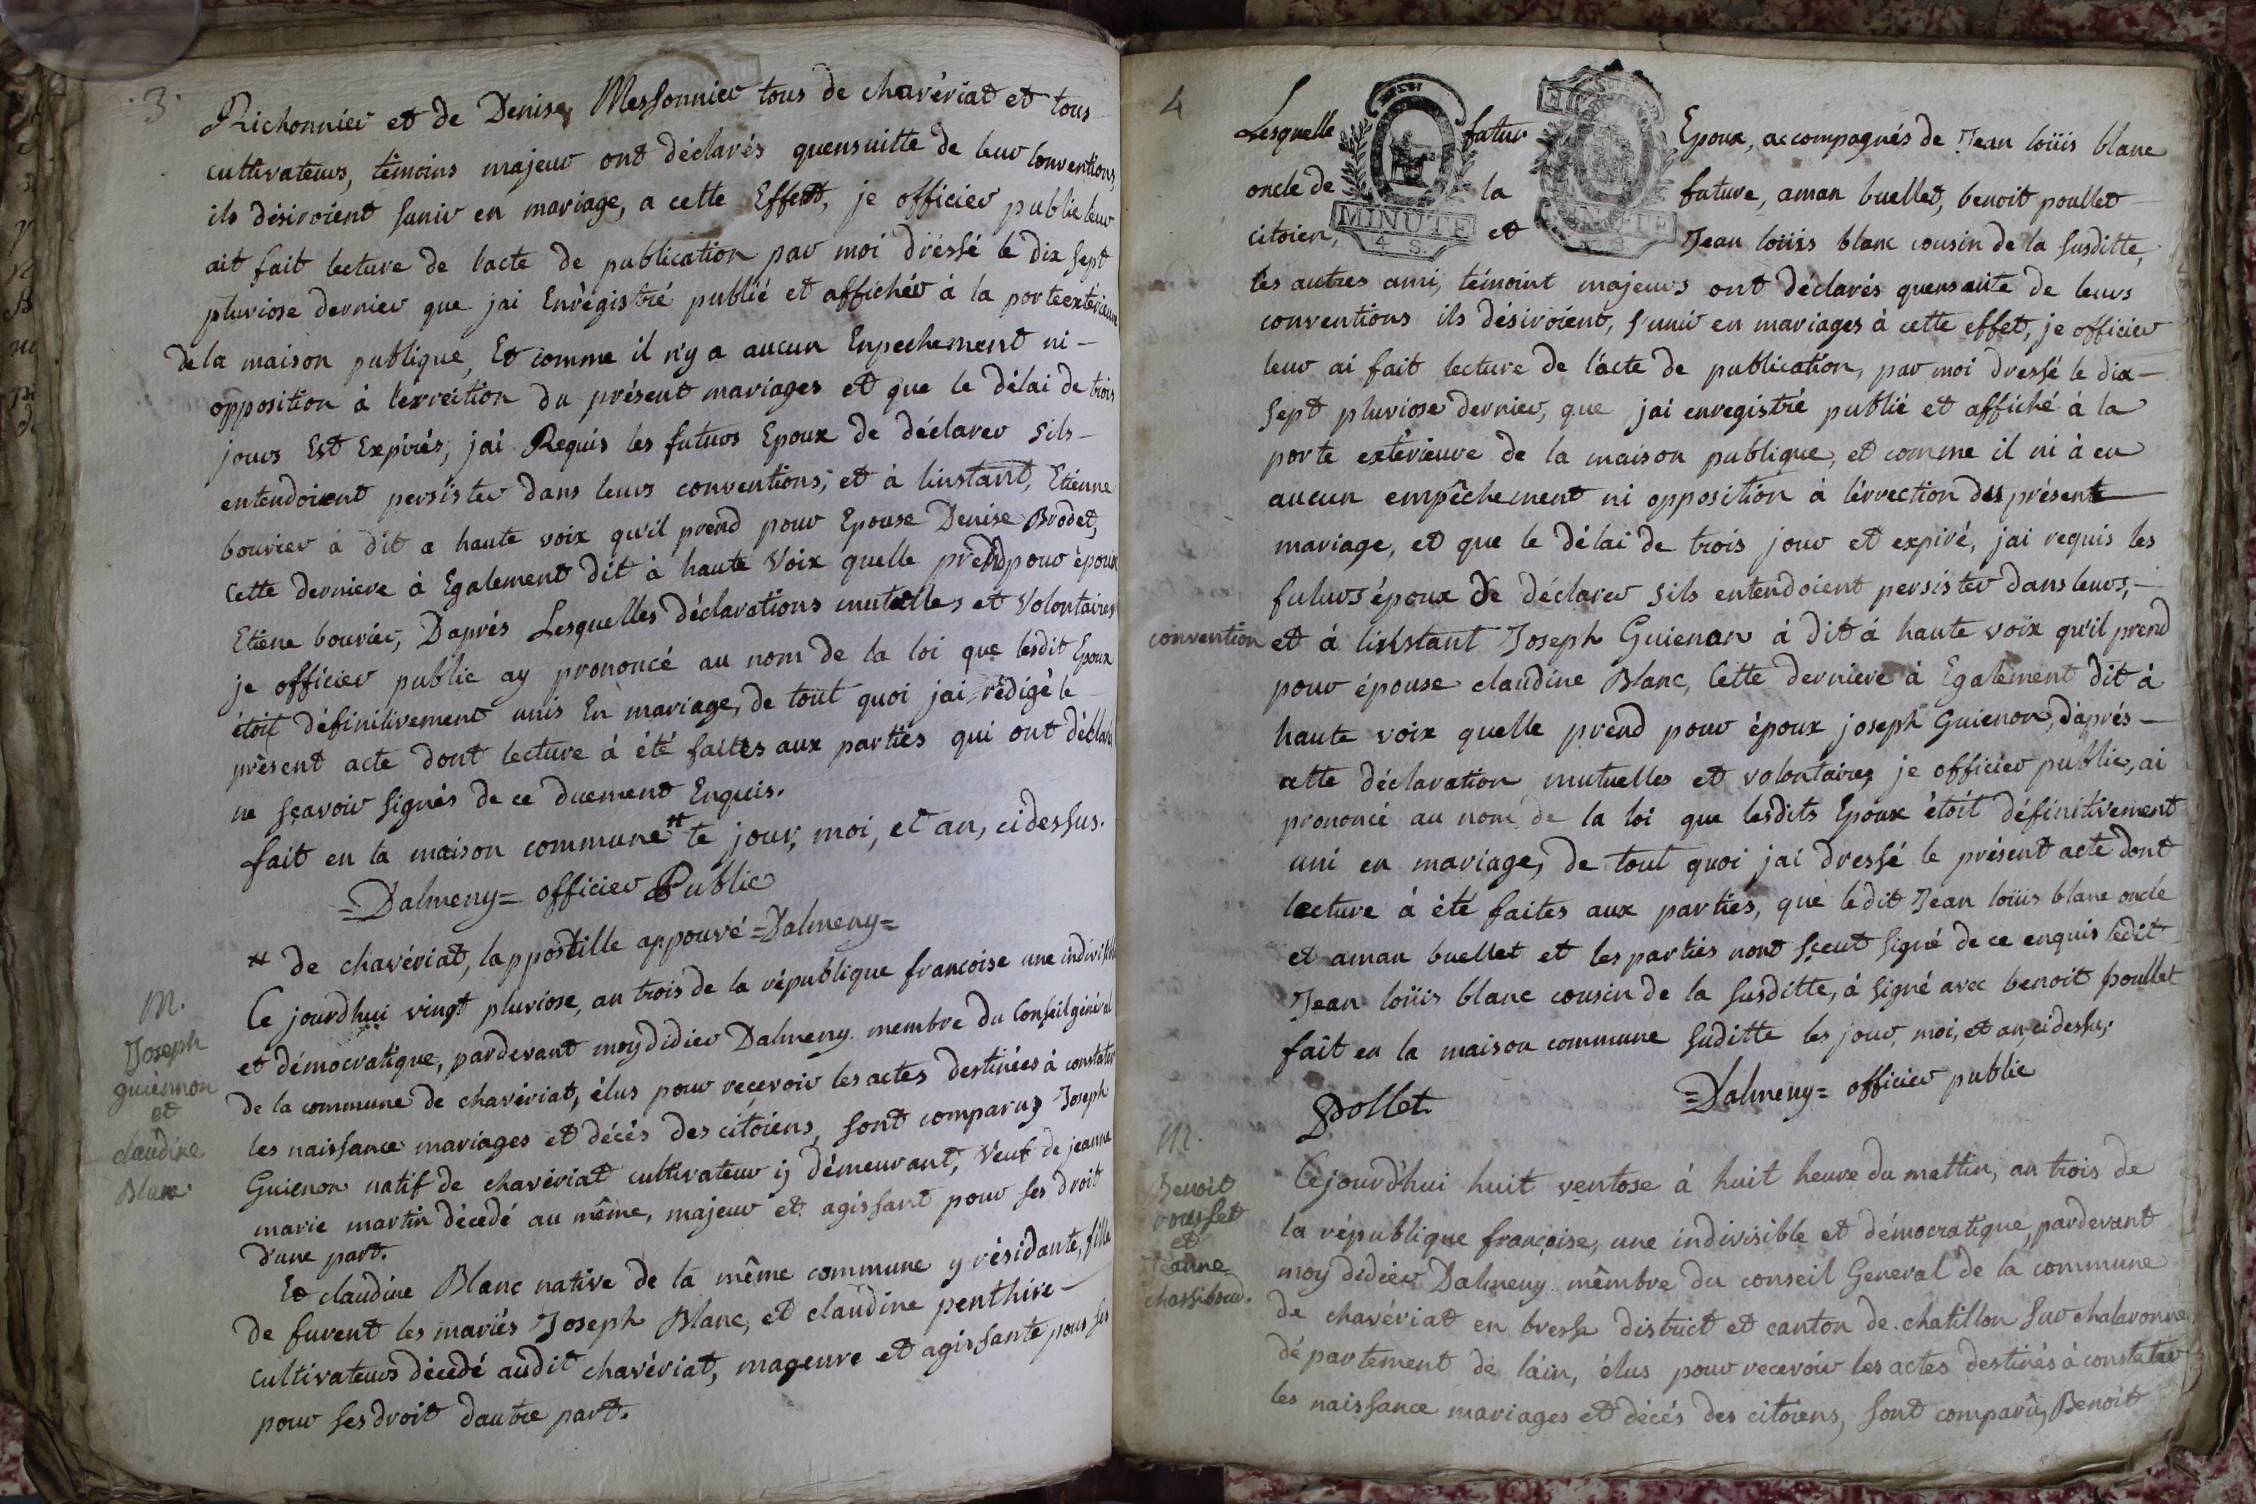 3
Richonnier et de Denise Messonnier tous de chavériat et tous
cultivateurs, témoins majeur ont déclarés quensuitte de leur conventions,
ils désiroient sunir en mariage, a cette Effett, je officier public leur
ait fait lecture de lacte de publication par moi dréssé le dix sept
pluviose dernier que jai Enrégistré publié et affichér à la porte extérieure
de la maison publique, Et comme il n'y a aucun Enpechement ni -
opposition à lerrection du présent mariages et que le délai de trois
jours Est Expirés, jai Requis les futurs Epoux de déclarer sils -
entendoient persister dans leurs conventions; et à linstant, Etienne
bourier à dit a haute voix qu'il prend pour Epouse Denise Brodet,
Cette derniere à Egalement dit à haute Voix quelle prend pour époux
Etiene bouriér, D'aprés Lesquelles déclarations mutuelles et Volontaires
je officier public ay prononcé au nom de la loi que lesdit Epoux
étoit définitivement unis En mariage, de tout quoi jai rédigé le
présent acte dont lecture à été faites aux parties qui ont déclaré
ne sçavoir signés de ce duement Enquis.
fait en la maison commune # le jour, moi, et an, cidessus.
=Dalmeny= officier Public
# de chavériat, lappostille appouvé =Dalmeny=
M.
Joseph
guiennon
et
claudine
Blanc.
Ce jourdhui vingt pluviose, an trois de la république francoise une indivisible
et démocratique, pardevant moy didier Dalmeny membre du Conseil général
de la commune de chavériat, élus pour recevoir les actes destinées à constater
les naissance mariages et décés des citoiens, sont comparus Joseph
Guienon natif de chavériat cultivateur y démeurant, Veuf de jeanne
marie martin décedé au même, majeur et agissant pour ses droit
d'une part.
Et claudine Blanc native de la même commune y résidante, fille
de furent les mariés Joseph Blanc, et claudine penthire -
cultivateurs décedé audit chavériat, mageure et agissante pour ses
pour ses droit dautre part.
4
Lesquelle futur Epoux, accompagnés de Jean loüis blanc
oncle de la future, aman buellet, benoit poullet
citoien, et Jean loüis blanc cousin de la susditte,
MINUTE
4 S.
les autres ami, témoint majeurs ont déclarés quensuite de leurs
conventions ils désiroient, s'unir en mariages à cette effet, je officier
leur ai fait lecture de l'acte de publication, par moi dressé le dix -
sept pluviose dernier, que jai enregistré publié et affiché à la
porte extérieure de la maison publique, et comme il ni à eu
aucun empêchement ni opposition à lérrection des présent
mariage, et que le délai de trois jour et expiré, jai requis les
futurs époux de déclarer sils entendoient persister dans leurs, -
convention et á linstant Joseph Guienon à dit á haute voix qu'il prend
pour épouse claudine Blanc, Cette derniere à Egalement dit à
haute voix quelle prend pour époux joseph Guienon, d'aprés -
cette déclaration mutuelles et volontaires je officier public, ai
prononcé au nom de la loi que lesdits Epoux étoit définitivement
uni en mariage, de tout quoi jai dressé le présent acte dont
lecture à été faites aux parties, que ledit Jean loüis blanc oncle
et aman buellet et les parties nont sçeut signé de ce enquis ledit
Jean loüis blanc cousin de la susditte, á signé avec benoit poullet
fait en la maison commune suditte les jour, moi, et an, cidessus,
Pollet.
=Dalmeny= officier public
M.
Benoit
rousset
et
Jeanne
Cejourd'hui huit ventose à huit heure du mattin, an trois de
la république françoise, une indivisible et démocratique, pardevant
moy didier Dalmeny mêmbre du conseil General de la commune
de chavériat en bresse district et canton de chatillon sur chalaronne
département de láin, élus pour recevoir les actes destinés à constater
les naissance mariages et décés des citoiens, sont comparûs Benoit